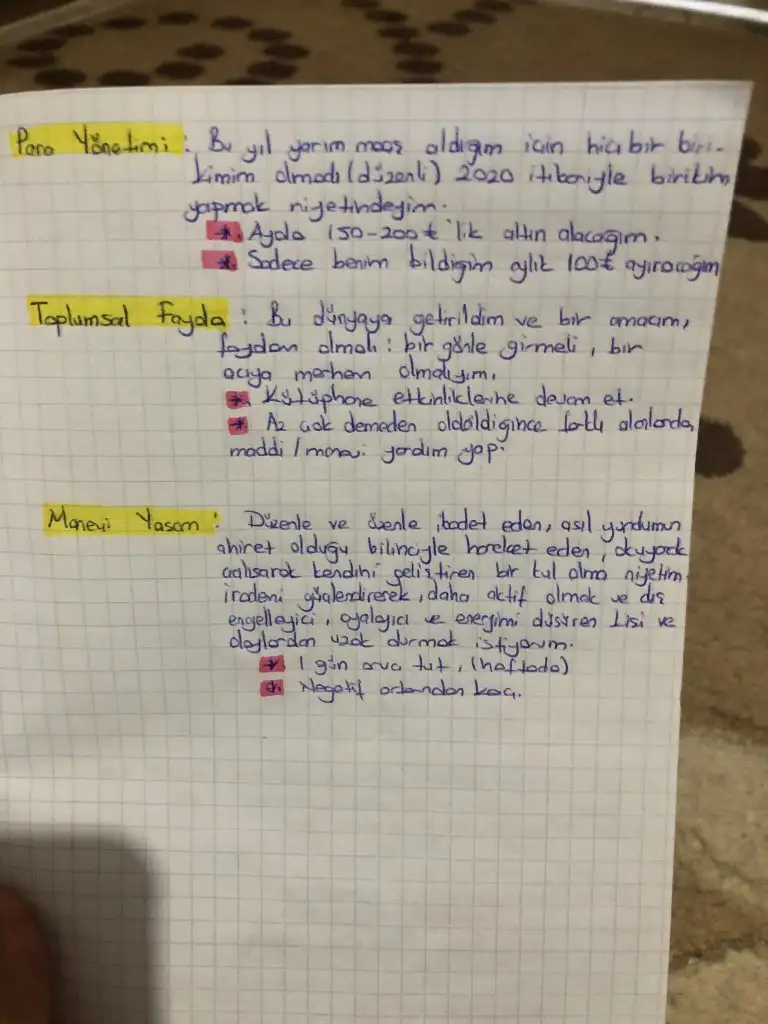 Para Yönetimi : Bu yıl yarım maaş aldığım için hiçbir biri-
kimim olmadı (düzenli) 2020 itibariyle birikim
yapmak niyetindeyim.
* Ayda 150-200₺'lik altın alacağım.
* Sadece benim bildiğim aylık 100₺ ayıracağım
Toplumsal Fayda : Bu dünyaya getirildim ve bir amacım,
faydam olmalı : bir gönle girmeli, bir
acıya merhem olmalıyım.
* Kütüphane etkinliklerine devam et.
* Az çok demeden olabildiğince farklı alanlarda,
maddi / manevi yardım yap.
Manevi Yaşam : Düzenle ve özenle ibadet eden, asıl yurdumun
ahiret olduğu bilinciyle hareket eden, okuyarak
çalışarak kendini geliştiren bir kul olma niyetim.
iradeni güçlendirerek, daha aktif olmak ve dış
engelleyici, oyalayıcı ve enerjimi düşüren kişi ve
olaylardan uzak durmak istiyorum.
* 1 gün oruç tut, (haftada)
* Negatif ortamdan kaç.